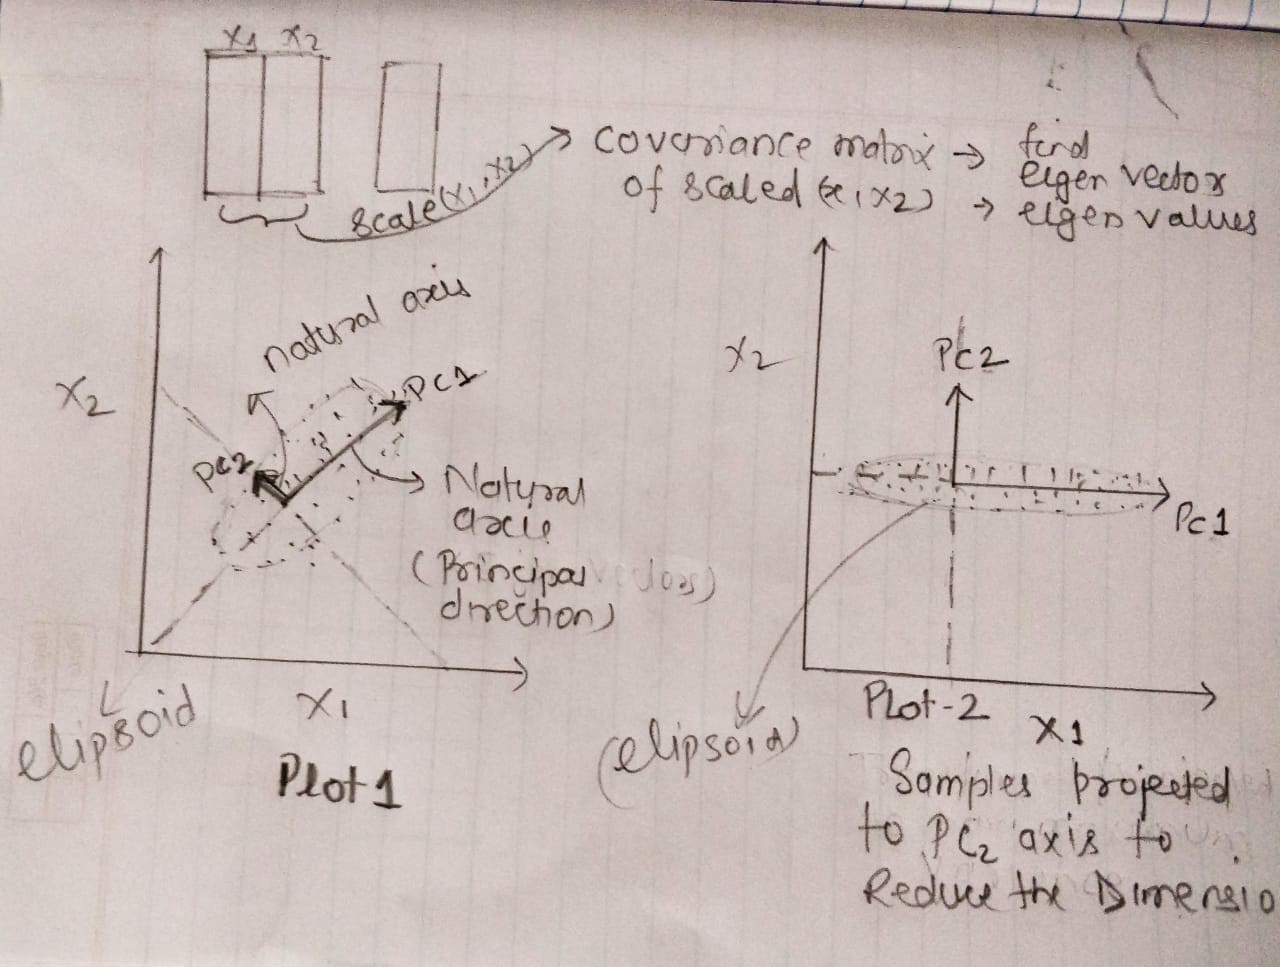 X1 X2
Scale(X1, X2)
Covariance matrix → find
eigen vector
of scaled (x1, X2) → eigen values
natural axis
X2
PC1
PC2
Natural
axis
(Principal
direction)
elipsoid
X1
Plot 1
X2
PC2
PC1
(elipsoid)
Plot-2
X1
Samples projected
to PC2 axis to
Reduce the Dimensio